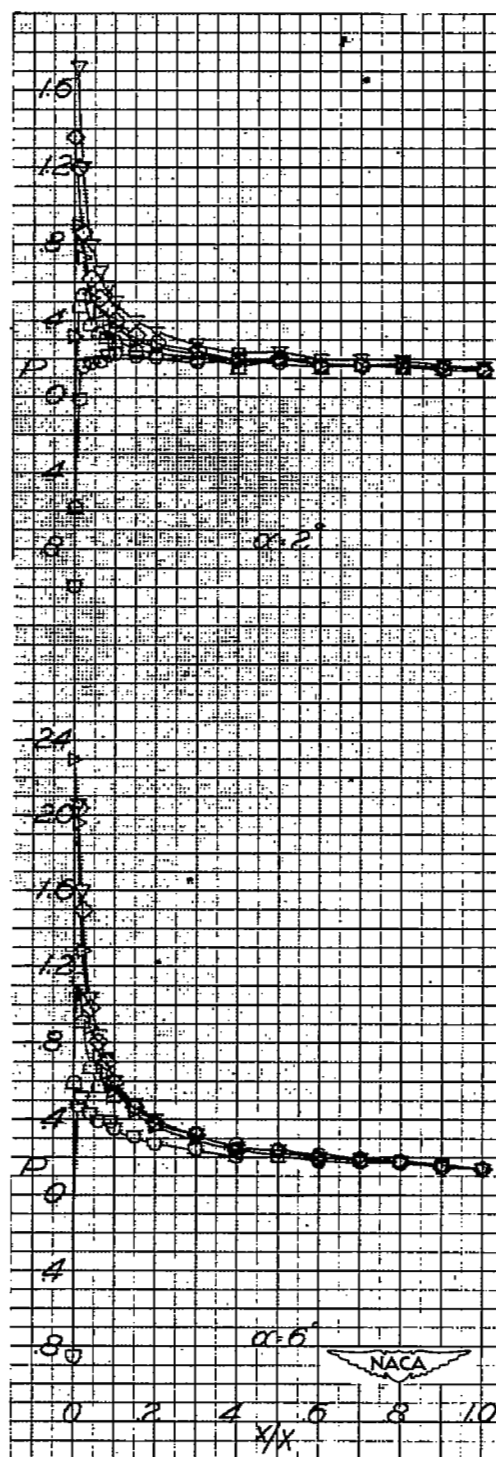 1.6
1.2
.8
.4
P
0
.4
.8
α=2°
2.4
2.0
1.6
1.2
.8
.4
P
0
.4
.8
α=6°
NACA
0 .2 .4 .6 .8 1.0
x/X